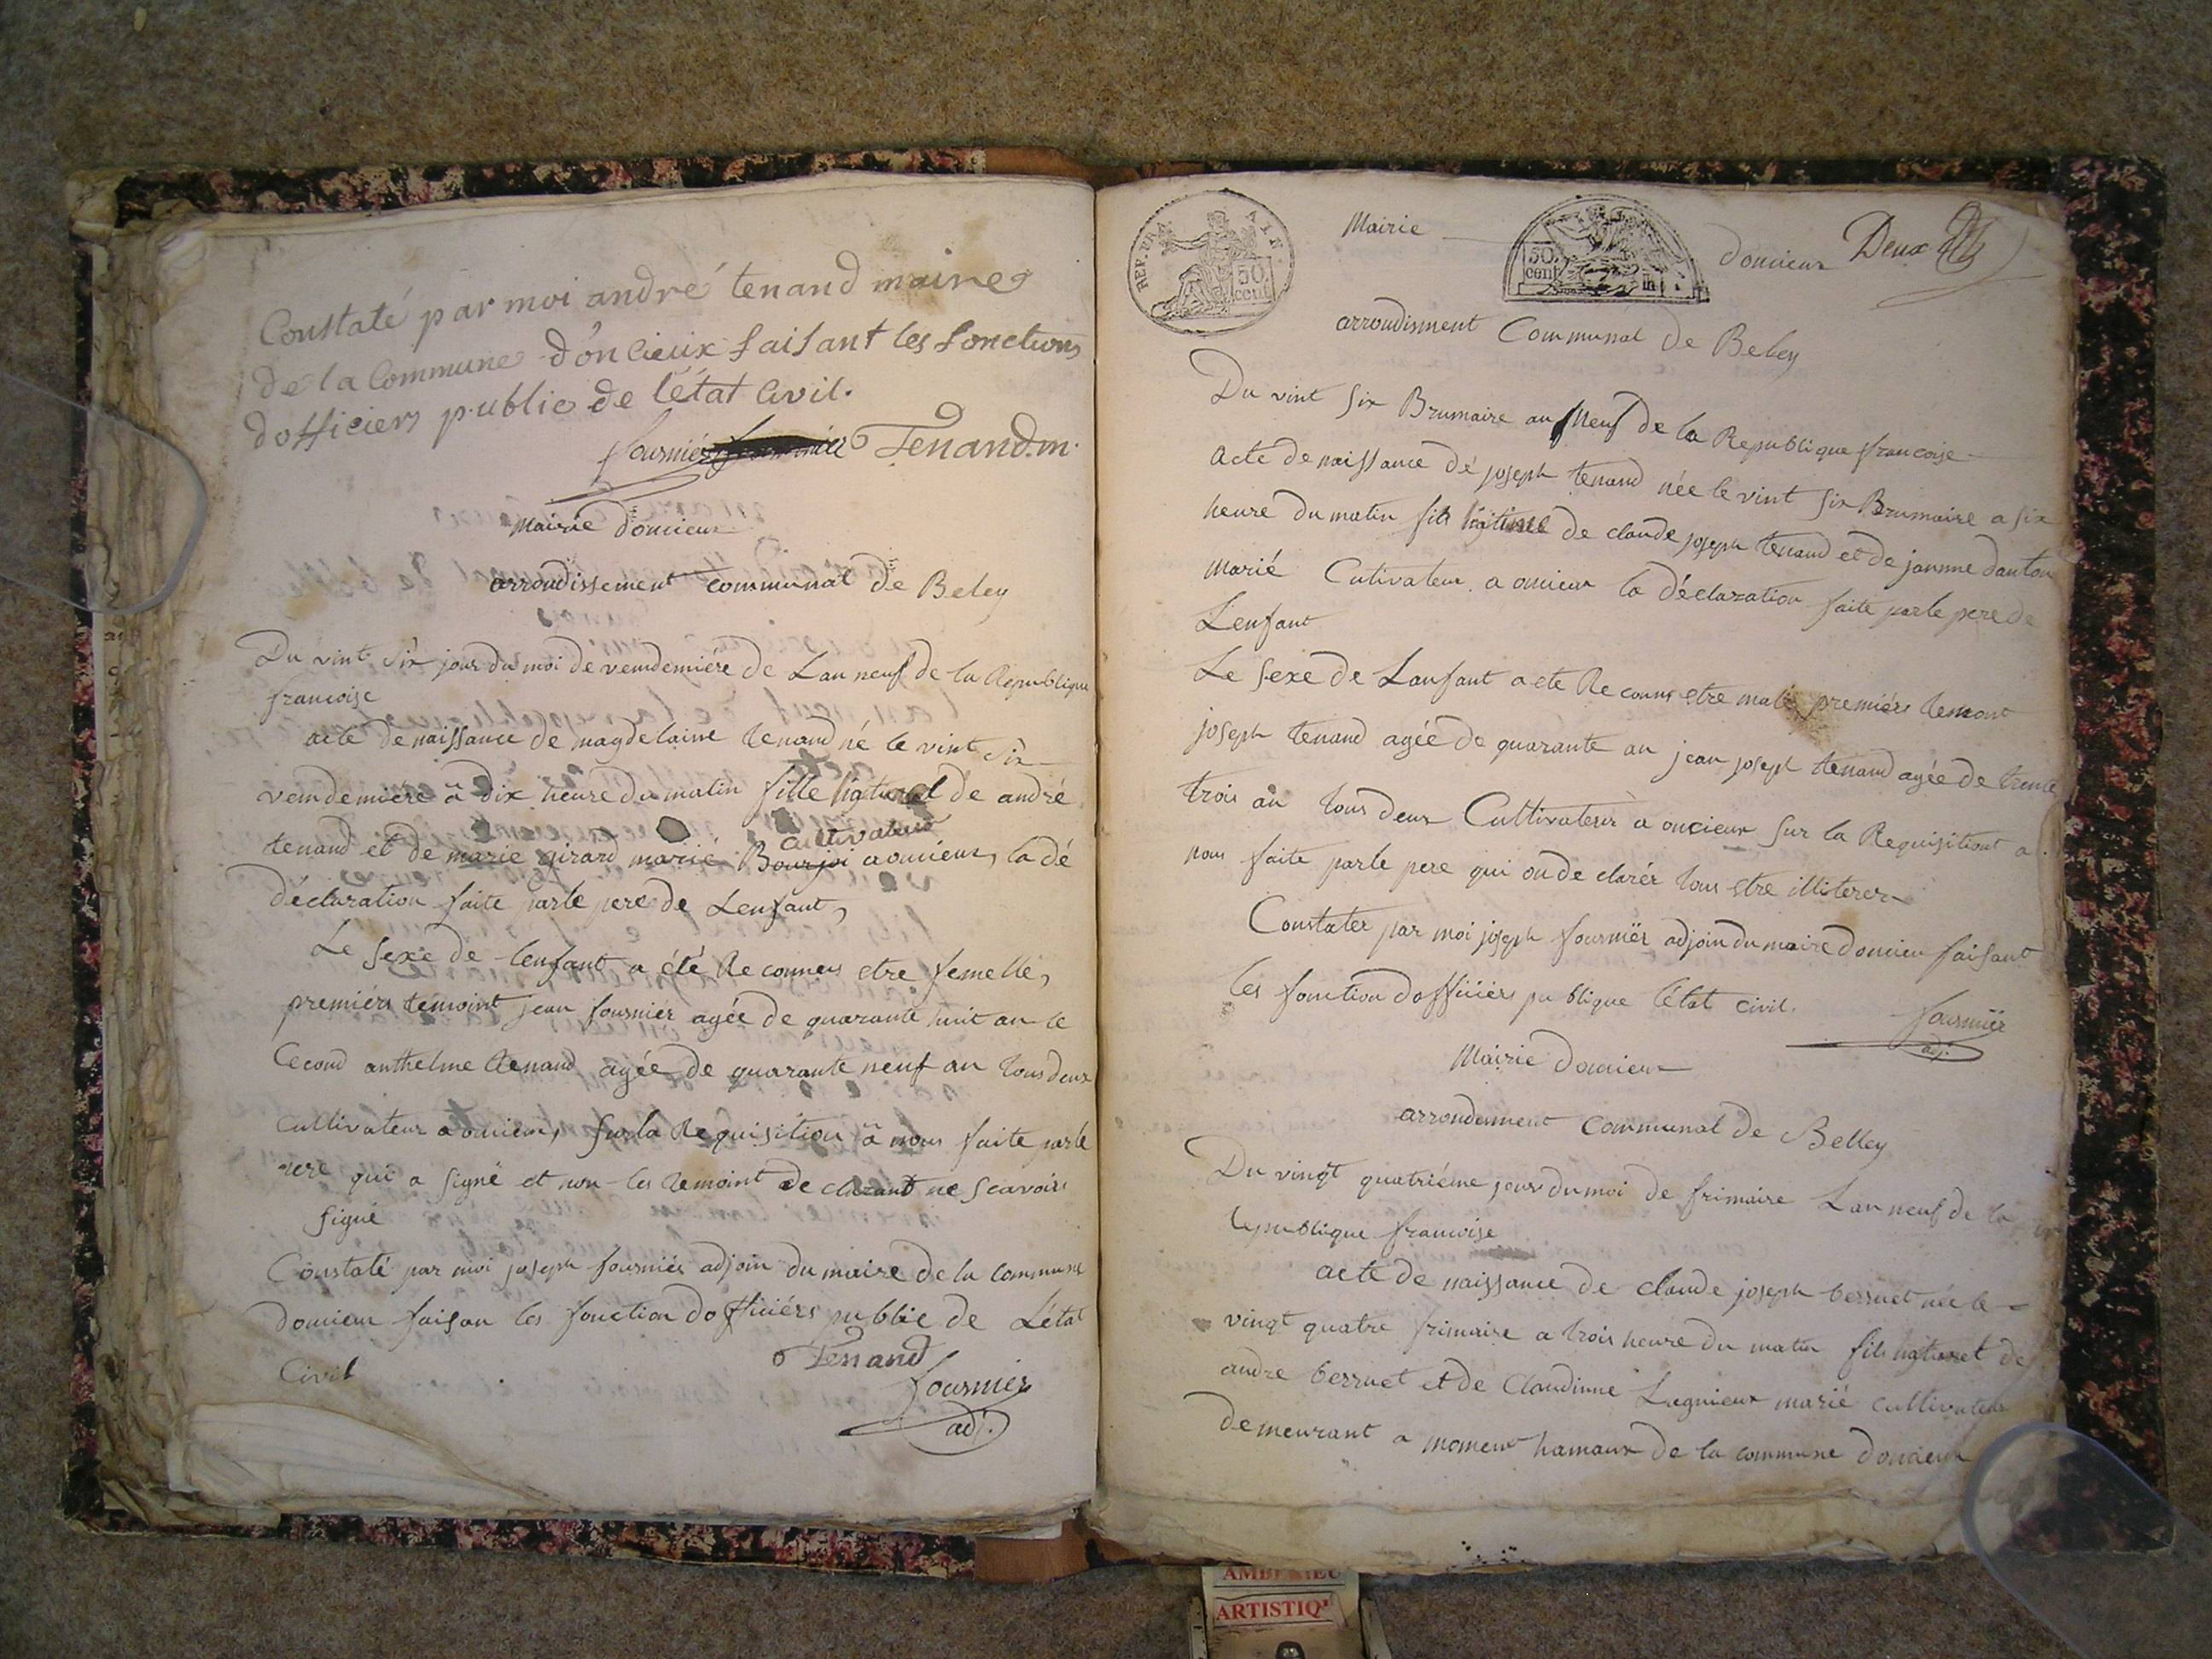 Constaté par moi andré tenand maire
de la Commune d'oncieux faisant les fonctions
dofficiers public de l'état Civil.
fournier Tenand.m.
Mairie doncieux
arrondissement communal de Beley
Du vint six jour du moi de vendemiere de Lan neuf de la Republique
francoise
acte de naissance de magdelaine tenand né le vint six
vendemiere à dix heure du matin fille naturel de andré
cultivateur
tenand et de marie girard marié Bourjoi a oncieux, la dé
déclaration faite par le pere de Lenfant,
Le Sexe de lenfant a été Reconneus etre femelle,
premiérs témoint jean fournier agée de quarante huit an le
Cecond anthelme tenand agée de quarante neuf an tous deux
Cultivateur a oncieux, sur la Requisition à nous faite par le
pere qui a signé et non les temoint declarant ne scavoir
signé
Constaté par moi joseph fournier adjoin du maire de la commune
doncieux faisan les fonction dofficiérs public de L'état
Civil
Tenand
fournier
adj.
REP. FRA
50
cent
Mairie
50
cent
doncieux Deux
arrondisment Communal de Beley
Du vint six Brumaire an Neuf de la Republique francoise
Acte de naissance dé joseph tenand née le vint six Brumaire a six
heure du matin fils de claude joseph tenand et de jeanne danton
marié Cutivateur a oncieux la déclaration faite par le pere de
Lenfant
Le Sexe de Lanfant a ete Reconnu etre male premiérs temoint
joseph tenand agée de quarante an jean joseph tenand agée de trente
trois an tous deux Cultivateur a oncieux sur la Requisitiont a
nous faite par le pere qui on declarér tous etre illiterer
Constater par moi joseph fourniër adjoin du maire doncieu faisant
les fonction dofficiérs publique létat civil.
fourniër
adj.
Mairie doncieux
arrondement Communal de Belley
Du vingt quatriéme jour du moi de frimaire Lan neuf de la
republique francoise
acte de naissance de claude joseph berruet née le
vingt quatre frimaire a trois heure du matin fils naturel de
andre berruet et de Claudinne Lagnieux marié cultivateur
demeurant a moment hamaux de la commune doncieux
ARTISTIQ